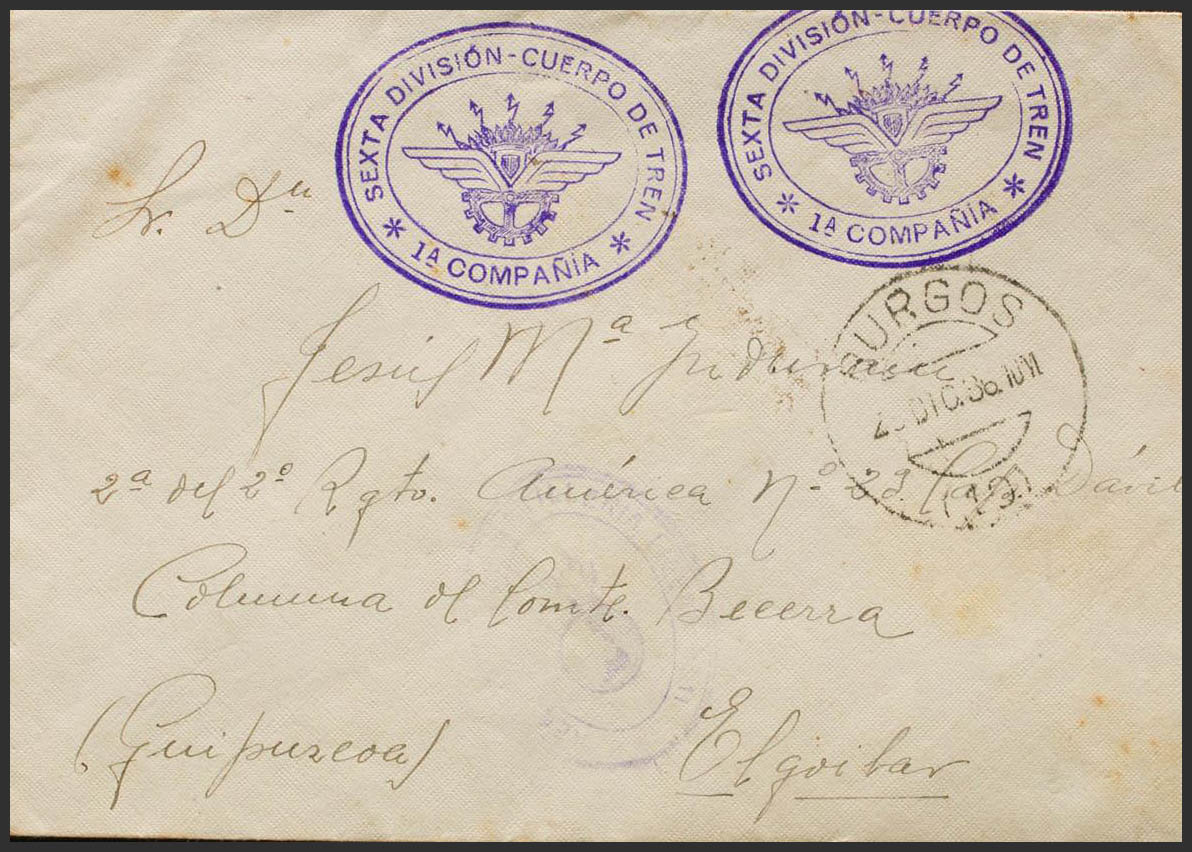 SEXTA DIVISIÓN-CUERPO DE TREN
* 1ª COMPAÑÍA *
SEXTA DIVISIÓN-CUERPO DE TREN
* 1ª COMPAÑÍA *
Sr. Dn
BURGOS
DIC. 36
Jesús Mª
2ª del 2º Rgto. América Nº 23
Columna del Comte. Becerra
(Guipuzcoa) Elgoibar